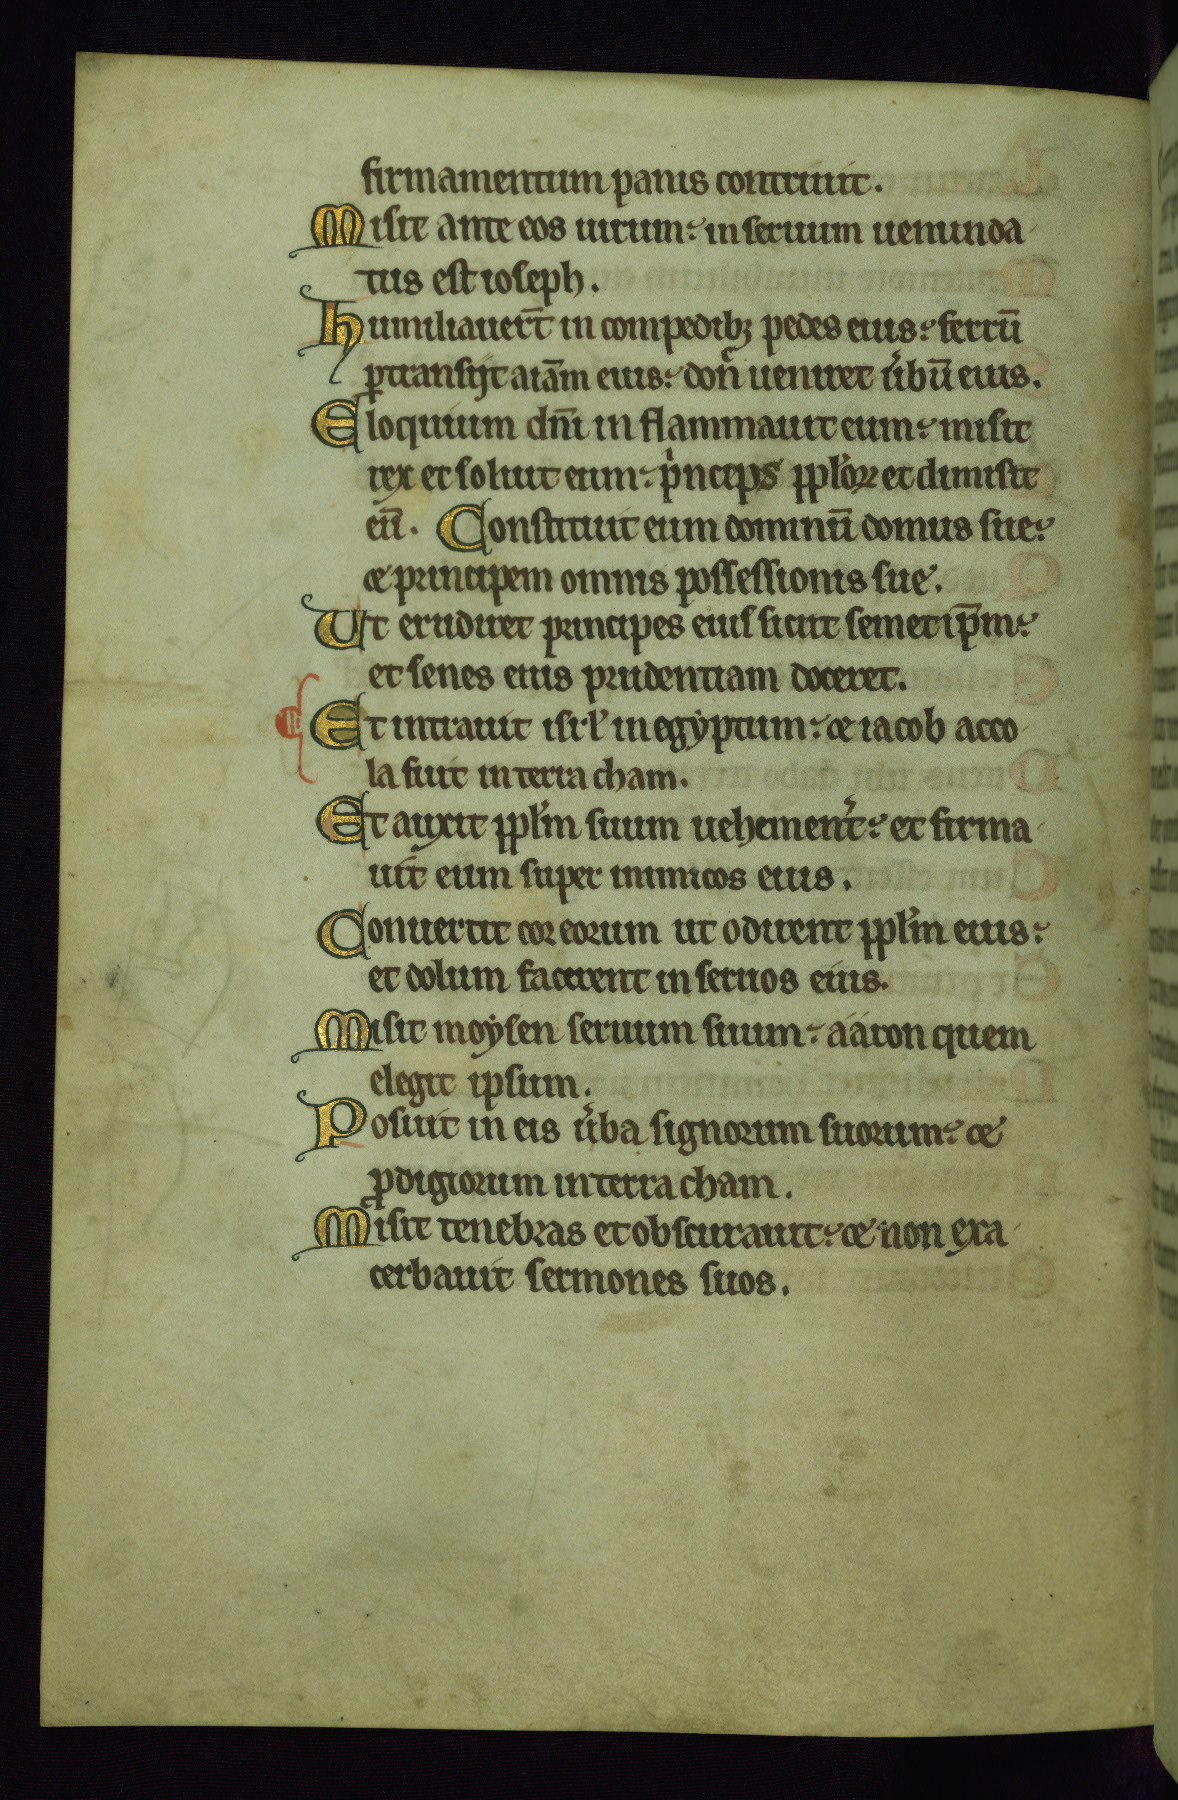 firmamentum panis contriuit.
Misit ante eos uirum: in seruum uenunda
tus est ioseph.
Humiliauert̄ in compedibꝫ pedes eius: ferrū
ꝑtransijt aīam eius: don̄ ueniret ūbū eius.
Eloquium dn̄i in flammauit eum: misit
rex et soluit eum: pͥnceps ppl̓oꝝ et dimisit
eū. Constituit eum dominū domus sue:
& principem omnis possessionis sue.
Ut erudiret principes eius sicut semet ip̄m:
et senes eius prudentiam doceret.
Et intrauit isrl̓ in egyptum: & iacob acco
la fuit in terra cham.
Et auxit ppl̓m suum uehement̓: et firma
uit eum super inimicos eius.
Conuertit cor eorum ut odirent ppl̓m eius:
et dolum facerent in seruos eius.
Misit moysen seruum suum: aaron quem
elegit ipsum.
Posuit in eis u̓ba signorum suorum: &
ꝓdigiorum in terra cham.
Misit tenebras et obscurauit: & non exa
cerbauit sermones suos.